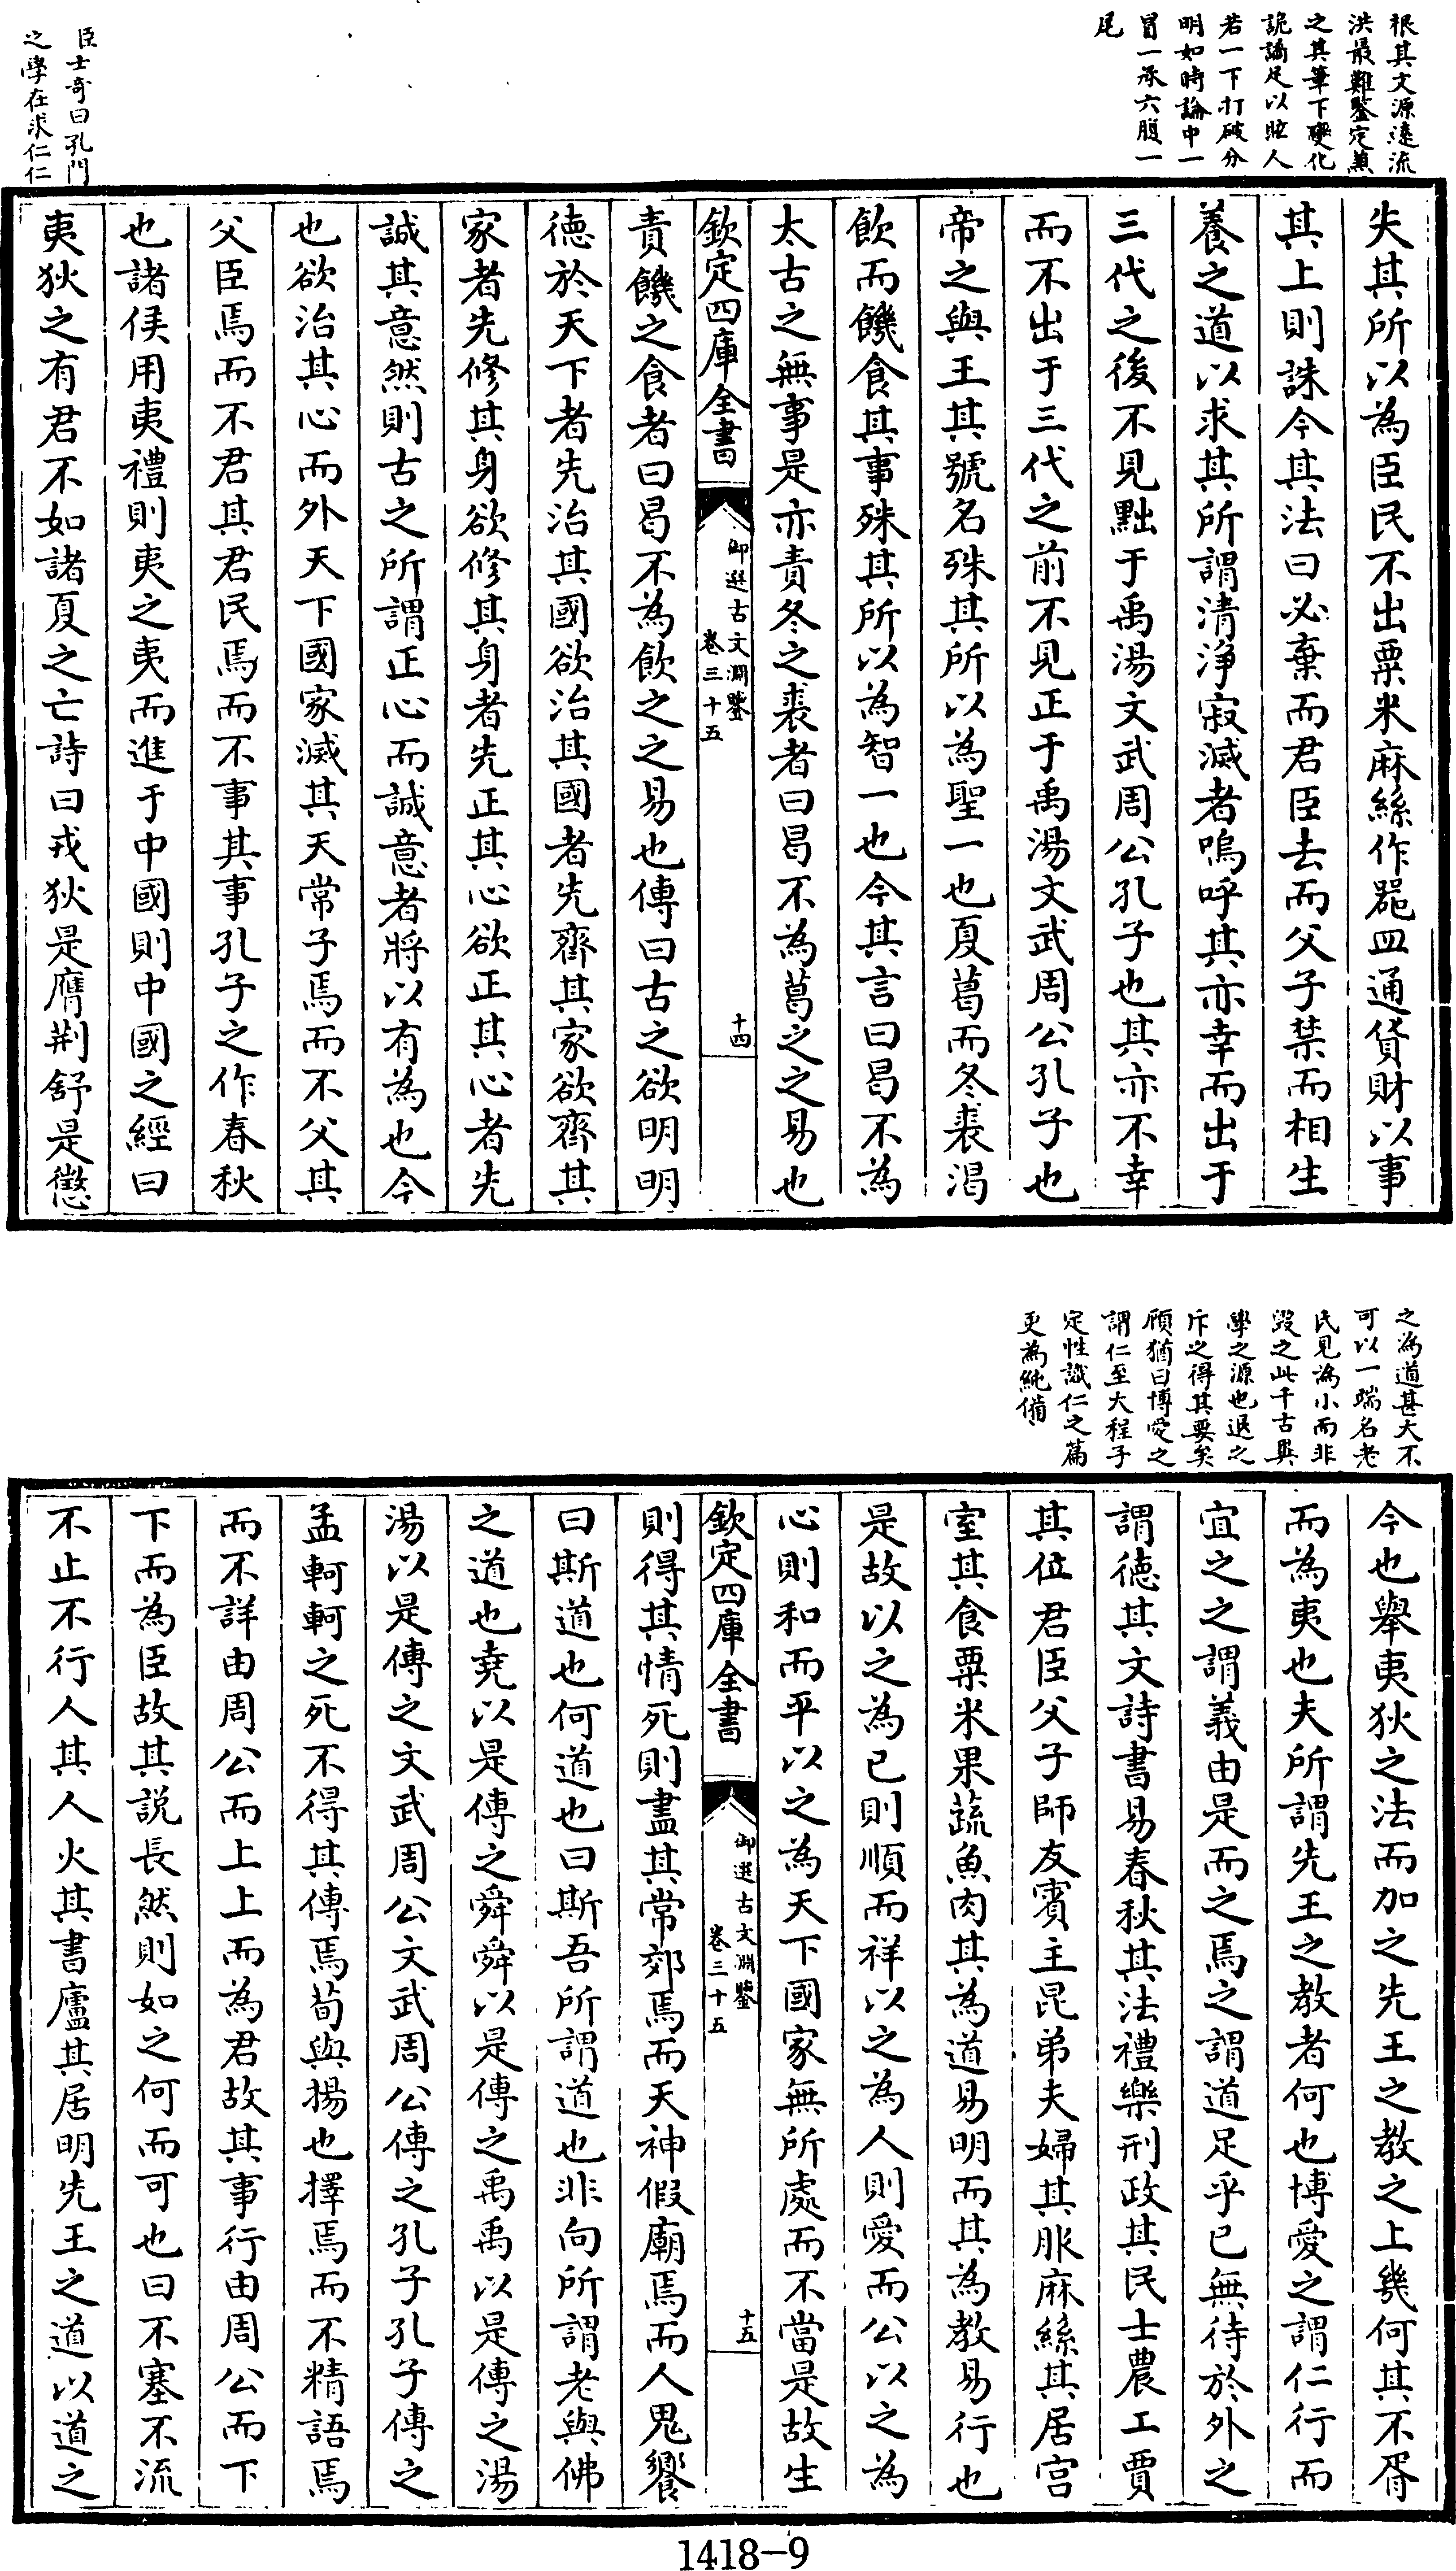 根其文源遠流
洪最難鑒定蓋
之其筆下變化
詭譎足以眩人
若一下打破分
明如時論中一
冒一承六腹一
尾
臣士奇曰孔門
之學在求仁仁
失其所以為臣民不出粟米麻絲作器皿通貨財以事
其上則誅今其法曰必棄而君臣去而父子禁而相生
養之道以求其所謂清浄寂滅者嗚呼其亦幸而出于
三代之後不見黜于禹湯文武周公孔子也其亦不幸
而不出于三代之前不見正于禹湯文武周公孔子也
帝之與王其號名殊其所以為聖一也夏葛而冬裘渴
飲而饑食其事殊其所以為智一也今其言曰曷不為
太古之無事是亦責冬之裘者曰曷不為葛之之易也
欽定四庫全書
御選古文淵鑒
卷三十五
十四
責饑之食者曰曷不為飲之之易也傳曰古之欲明明
徳於天下者先治其國欲治其國者先齊其家欲齊其
家者先修其身欲修其身者先正其心欲正其心者先
誠其意然則古之所謂正心而誠意者將以有為也今
也欲治其心而外天下國家滅其天常子焉而不父其
父臣焉而不君其君民焉而不事其事孔子之作春秋
也諸侯用夷禮則夷之夷而進于中國則中國之經曰
夷狄之有君不如諸夏之亡詩曰戎狄是膺荆舒是懲
之為道甚大不
可以一端名老
氏見為小而非
毀之此千古異
學之源也退之
斥之得其要矣
頋猶曰博愛之
謂仁至大程子
定性識仁之篇
更為純備
今也舉夷狄之法而加之先王之教之上幾何其不胥
而為夷也夫所謂先王之教者何也博愛之謂仁行而
宜之之謂義由是而之焉之謂道足乎已無待於外之
謂徳其文詩書易春秋其法禮樂刑政其民士農工賈
其位君臣父子師友賓主昆弟夫婦其服麻絲其居宫
室其食粟米果蔬魚肉其為道易明而其為教易行也
是故以之為已則順而祥以之為人則愛而公以之為
心則和而平以之為天下國家無所處而不當是故生
欽定四庫全書
御選古文淵鑒
卷三十五
十五
則得其情死則盡其常郊焉而天神假廟焉而人鬼饗
曰斯道也何道也曰斯吾所謂道也非向所謂老與佛
之道也堯以是傳之舜舜以是傳之禹禹以是傳之湯
湯以是傳之文武周公文武周公傳之孔子孔子傳之
孟軻軻之死不得其傳焉荀與揚也擇焉而不精語焉
而不詳由周公而上上而為君故其事行由周公而下
下而為臣故其説長然則如之何而可也曰不塞不流
不止不行人其人火其書廬其居明先王之道以道之
1418-9